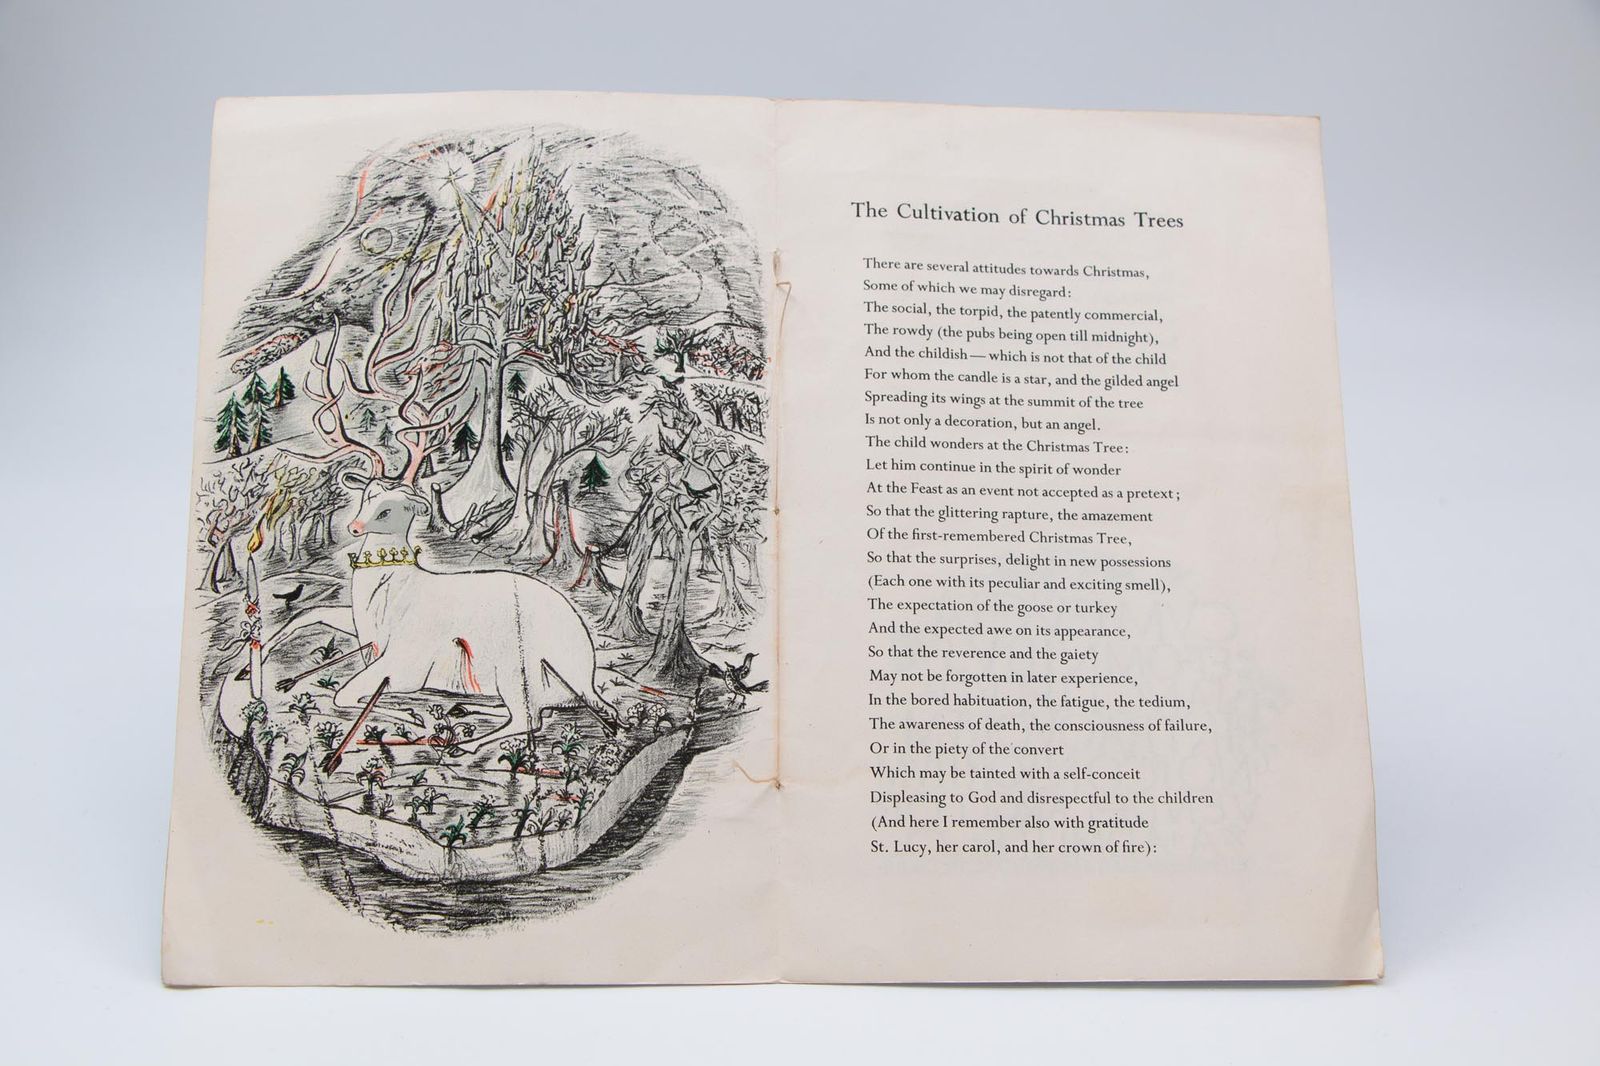 The Cultivation of Christmas Trees
There are several attitudes towards Christmas,
Some of which we may disregard:
The social, the torpid, the patently commercial,
The rowdy (the pubs being open till midnight),
And the childish — which is not that of the child
For whom the candle is a star, and the gilded angel
Spreading its wings at the summit of the tree
Is not only a decoration, but an angel.
The child wonders at the Christmas Tree:
Let him continue in the spirit of wonder
At the Feast as an event not accepted as a pretext;
So that the glittering rapture, the amazement
Of the first-remembered Christmas Tree,
So that the surprises, delight in new possessions
(Each one with its peculiar and exciting smell),
The expectation of the goose or turkey
And the expected awe on its appearance,
So that the reverence and the gaiety
May not be forgotten in later experience,
In the bored habituation, the fatigue, the tedium,
The awareness of death, the consciousness of failure,
Or in the piety of the convert
Which may be tainted with a self-conceit
Displeasing to God and disrespectful to the children
(And here I remember also with gratitude
St. Lucy, her carol, and her crown of fire):